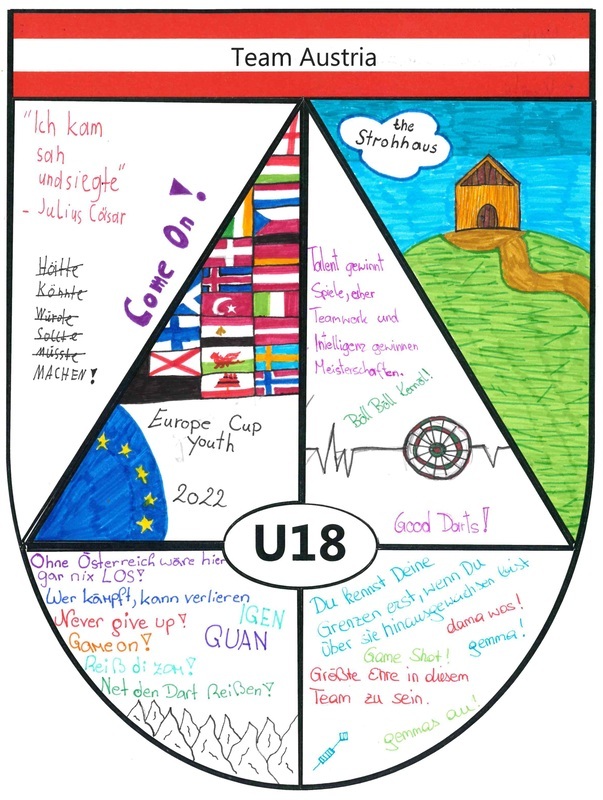 Team Austria
"Ich kam
sah
und siegte"
- Julius Cäsar
Come On!
Hätte
Könnte
Würde
Sollte
Müsste
MACHEN!
Europe Cup
Youth
2022
the
Strohhaus
Talent gewinnt
Spiele, aber
Teamwork und
Intelligenz gewinnen
Meisterschaften.
Böll Böll Kernöl!
Good Darts!
U18
Ohne Österreich wäre hier
gar nix LOS!
Wer kämpft, kann verlieren
Never give up!
IGEN
Game on!
QUAN
Reiß di zom!
Net den Dart Reißen!
Du kennst Deine
Grenzen erst, wenn Du
über sie hinausgewachsen bist
dama wos!
gemma!
Game Shot!
Größte Ehre in diesem
Team zu sein.
gemmas au!